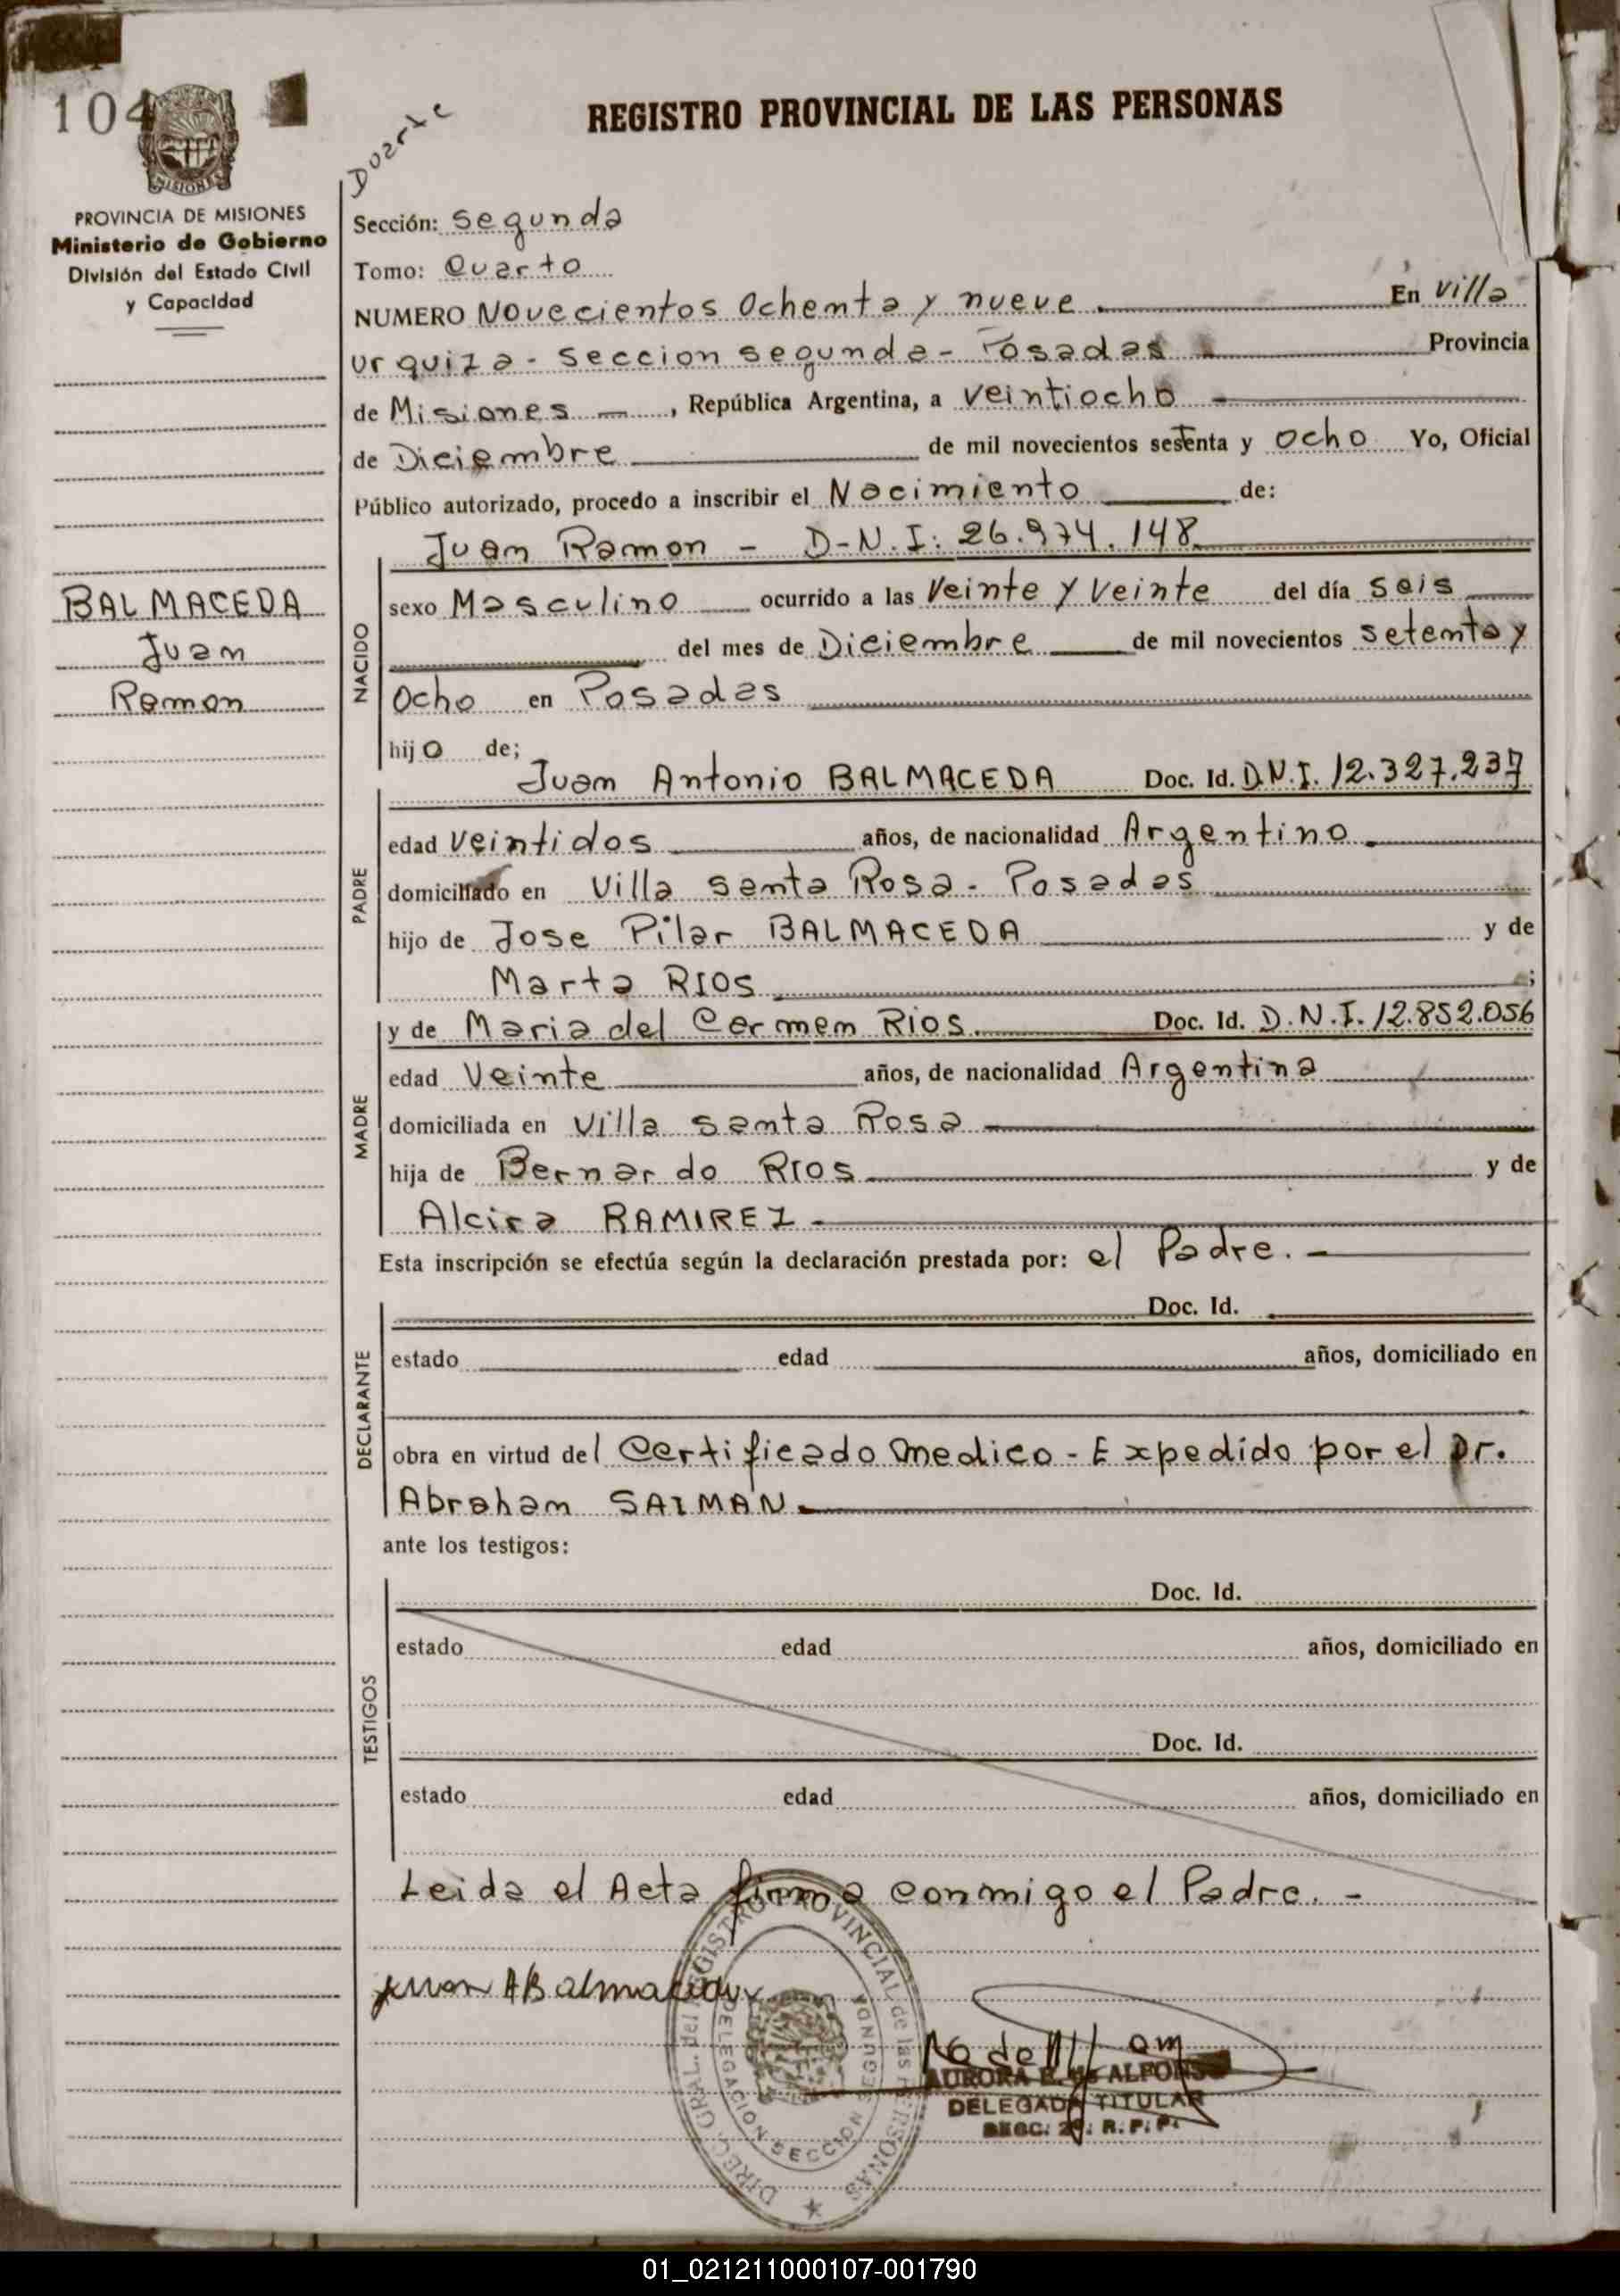 104
MISIONES
PROVINCIA DE MISIONES
Ministerio de Gobierno
División del Estado Civil
y Capacidad
BALMACEDA
Juan
Ramon
Duarte
REGISTRO PROVINCIAL DE LAS PERSONAS
Sección: Segunda
Tomo: Cuarto
NUMERO Novecientos Ochenta y nueve. En Villa
Urquiza - Seccion Segunda - Posadas Provincia
de Misiones —, República Argentina, a Veintiocho
de Diciembre de mil novecientos setenta y Ocho Yo, Oficial
Público autorizado, procedo a inscribir el Nacimiento de:
NACIDO
Juan Ramon - D-N.I: 26.974.148
sexo Masculino ocurrido a las Veinte y Veinte del día Seis
del mes de Diciembre de mil novecientos setenta y
Ocho en Posadas
hijo de;
PADRE
Juan Antonio BALMACEDA Doc. Id. D.N.I. 12.327.237
edad Veintidos años, de nacionalidad Argentino.
domiciliado en Villa Santa Rosa - Posadas
hijo de Jose Pilar BALMACEDA y de
Marta RIOS ;
MADRE
y de Maria del Carmen RIOS. Doc. Id. D.N.I. 12.852.056
edad Veinte años, de nacionalidad Argentina
domiciliada en Villa Santa Rosa
hija de Bernardo RIOS y de
Alcira RAMIREZ -
Esta inscripción se efectúa según la declaración prestada por: el Padre. -
DECLARANTE
Doc. Id.
estado edad años, domiciliado en
obra en virtud del Certificado Medico - Expedido por el Dr.
Abraham SAIMAN.
ante los testigos:
TESTIGOS
Doc. Id.
estado edad años, domiciliado en
Doc. Id.
estado edad años, domiciliado en
Leida el Acta firma conmigo el Padre. -
Juan A Balmaceda
DIREC. GRAL. del REGISTRO PROVINCIAL de las PERSONAS
DELEGACION SECCION SEGUNDA
AURORA de ALFONSO
DELEGADA TITULAR
R. P. P.
01_021211000107-001790